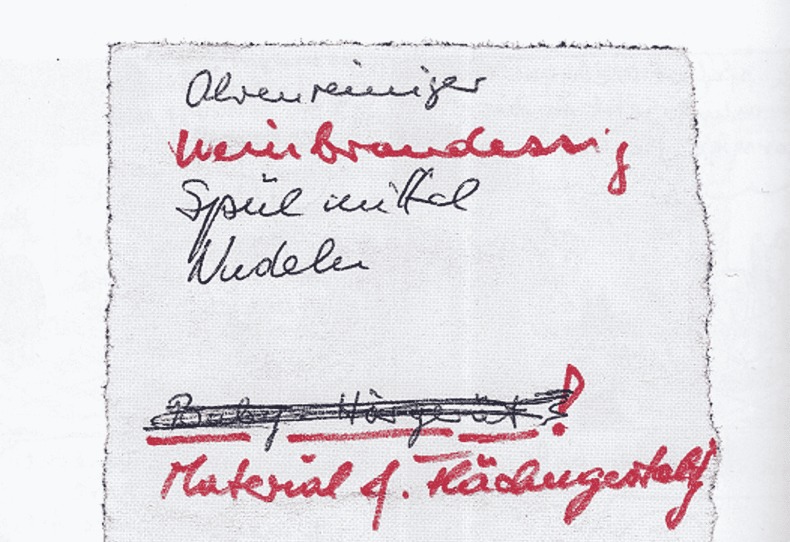 Ofenreiniger
Weinbrandessig
Spülmittel
Nudeln
Baby Hörgerät !
Material f. Flächengestalt